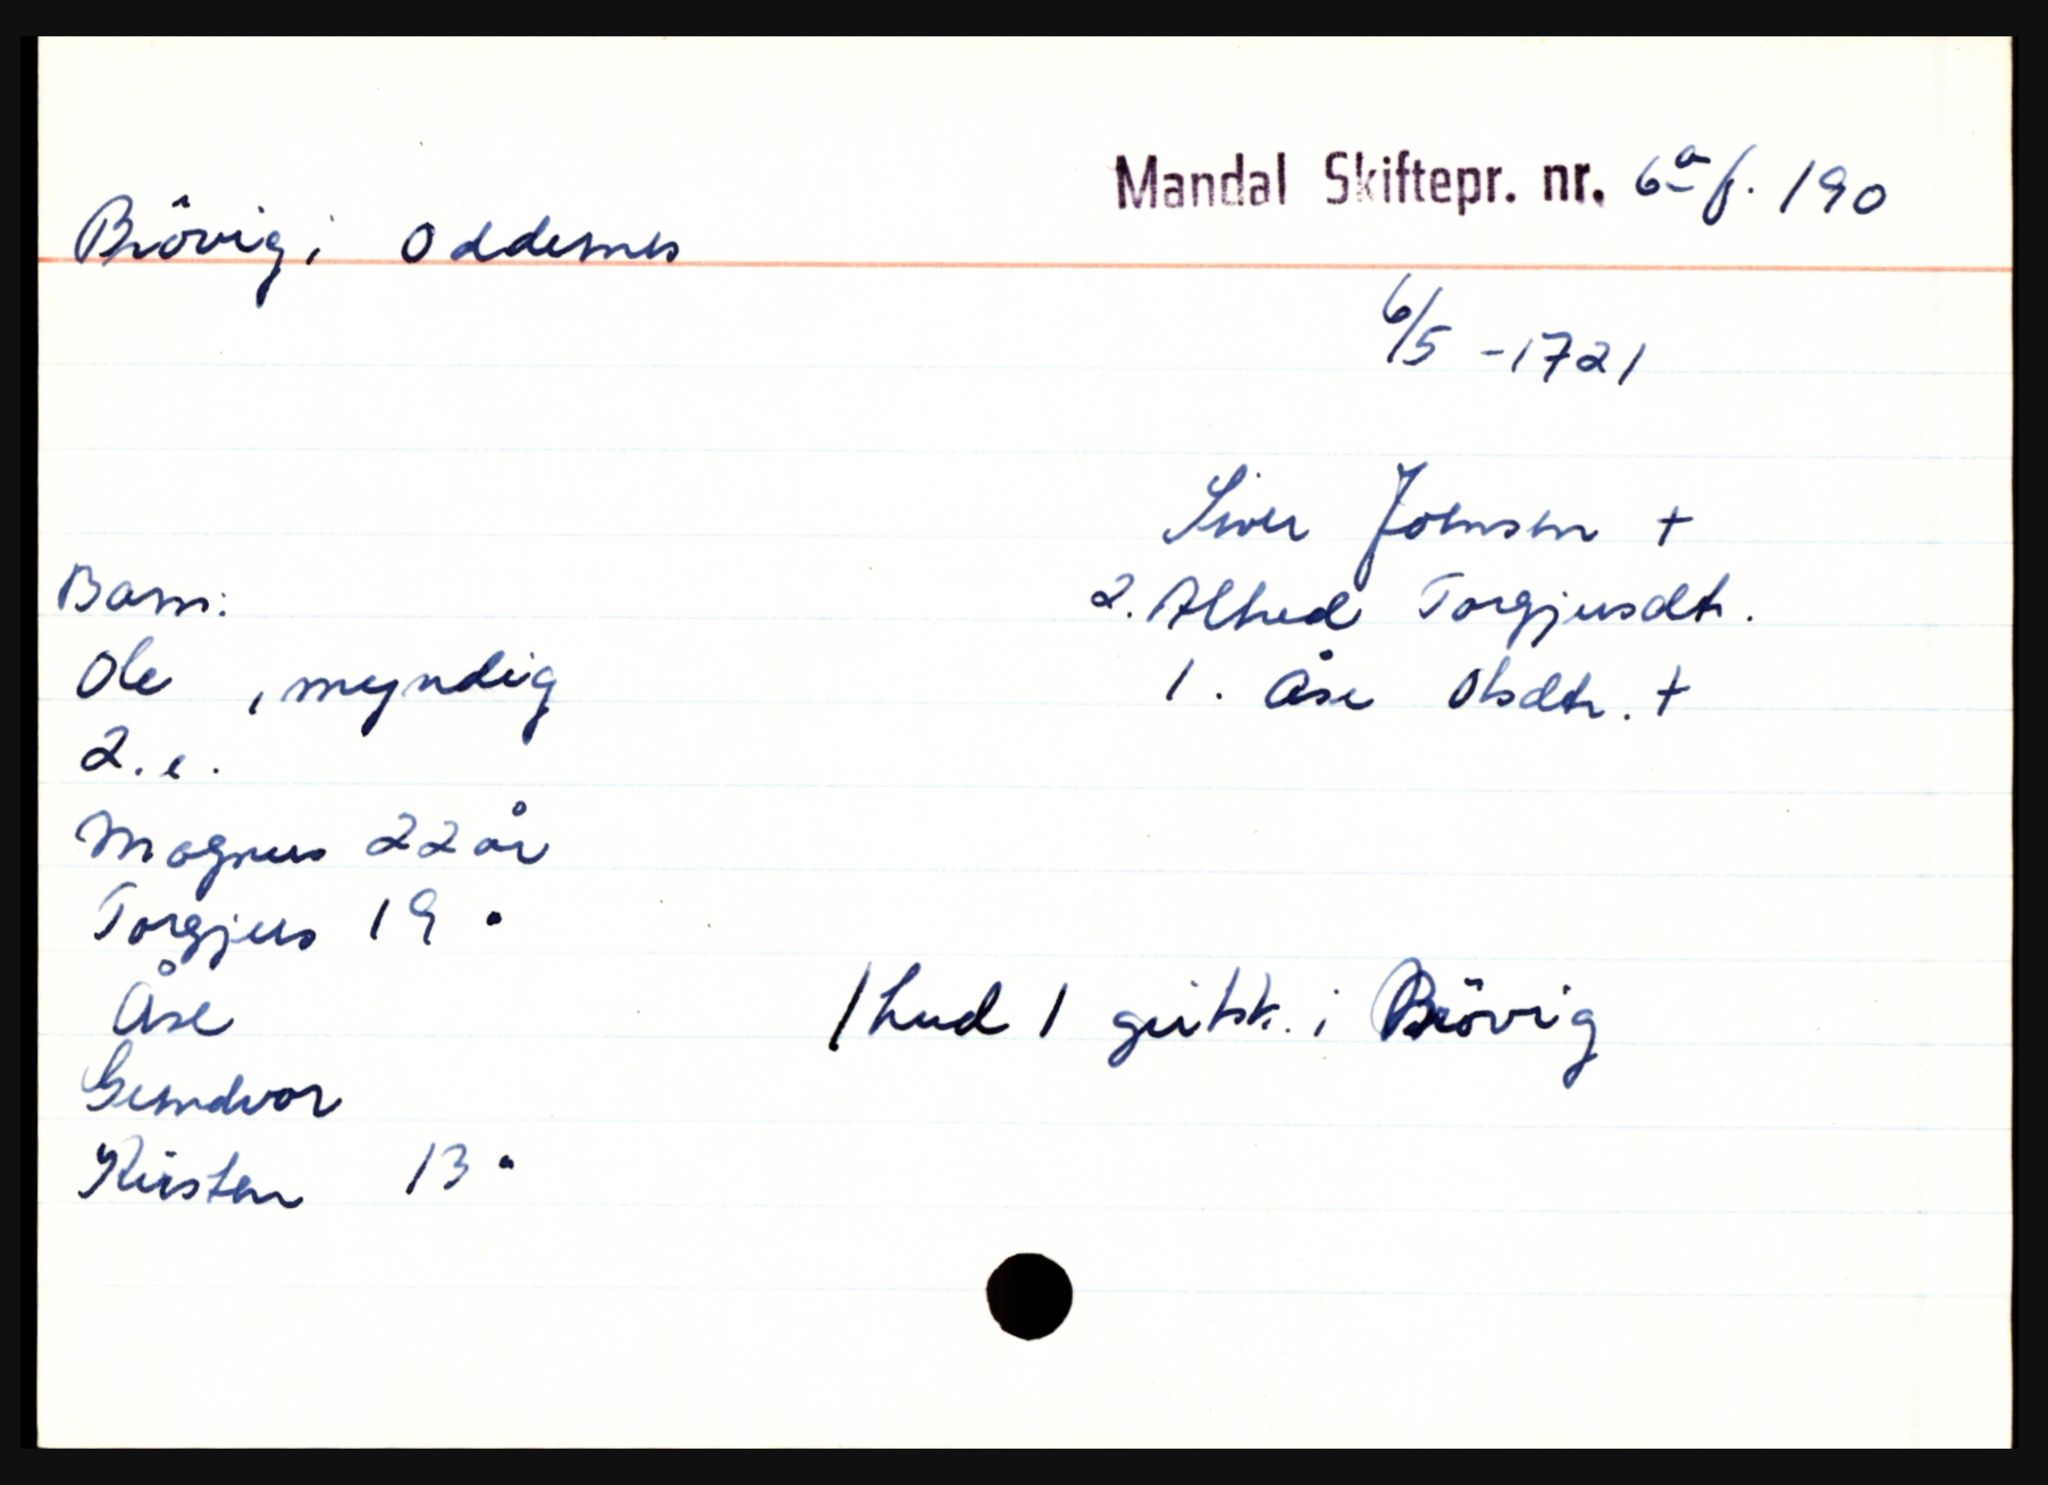 Mandal Skiftepr. nr. 6a f. 190
Brövig i Oddernes
6/5 - 1721
Siver Joensen +
2. Alhed Torgjusdtr.
1. Åse Olsdtr. +
Barn:
Ole , myndig
2. e.
Magnus 22 år
Torgjus 19 "
Åse
Gundvor
Kirsten 13 "
1 hud 1 geitsk. i Brövig